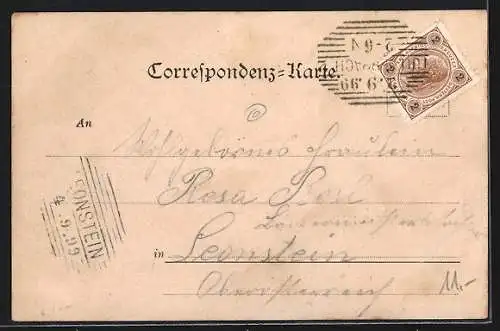 2-6 N
.9.99
Correspondenz=Karte.
An
Wohlgebornes Fräulein
Rosa
in Leonstein
Oberösterreich
LEONSTEIN
4.9.99
11.-